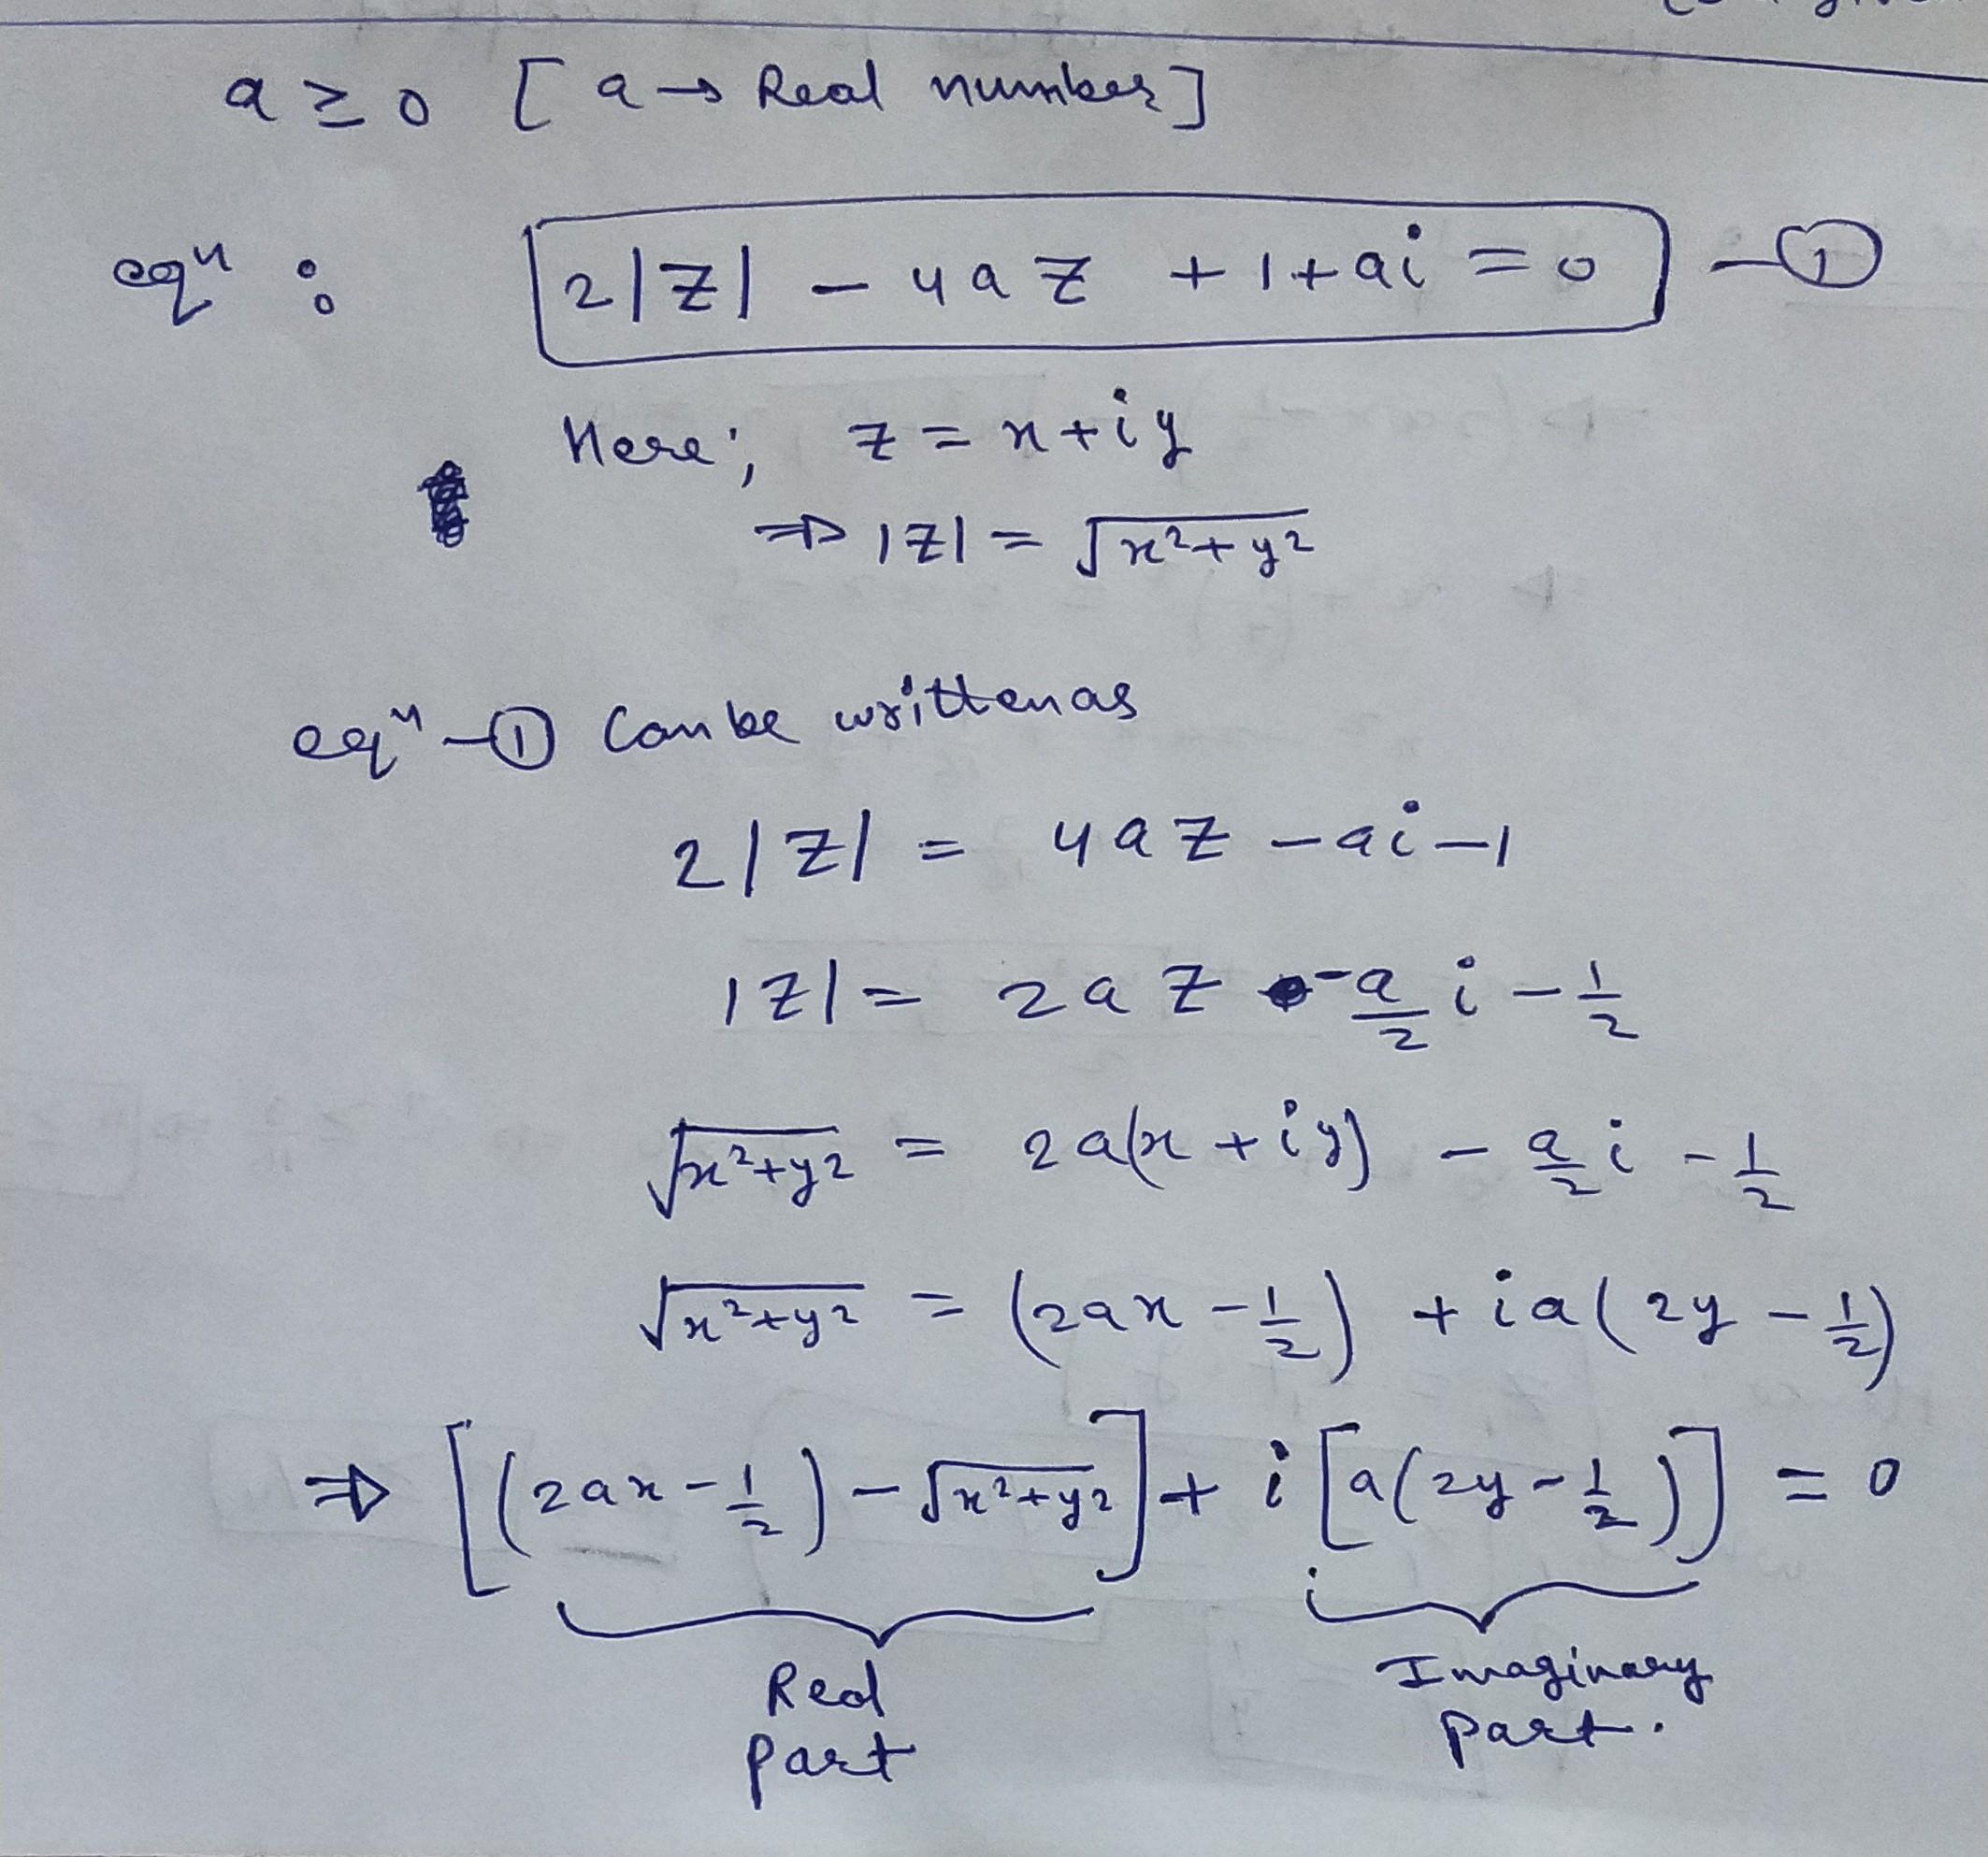 a ≥ 0 [ a → Real number ]
eqⁿ : 2|z| - 4az + 1 + ai = 0 - ①
Here; z = x + iy
⇒ |z| = √(x²+y²)
eqⁿ - ① Can be written as
2|z| = 4az - ai - 1
|z| = 2az - a/2 i - 1/2
√(x²+y²) = 2a(x + iy) - a/2 i - 1/2
√(x²+y²) = (2ax - 1/2) + ia(2y - 1/2)
⇒ [(2ax - 1/2) - √(x²+y²)] + i[a(2y - 1/2)] = 0
Real part
Imaginary part.